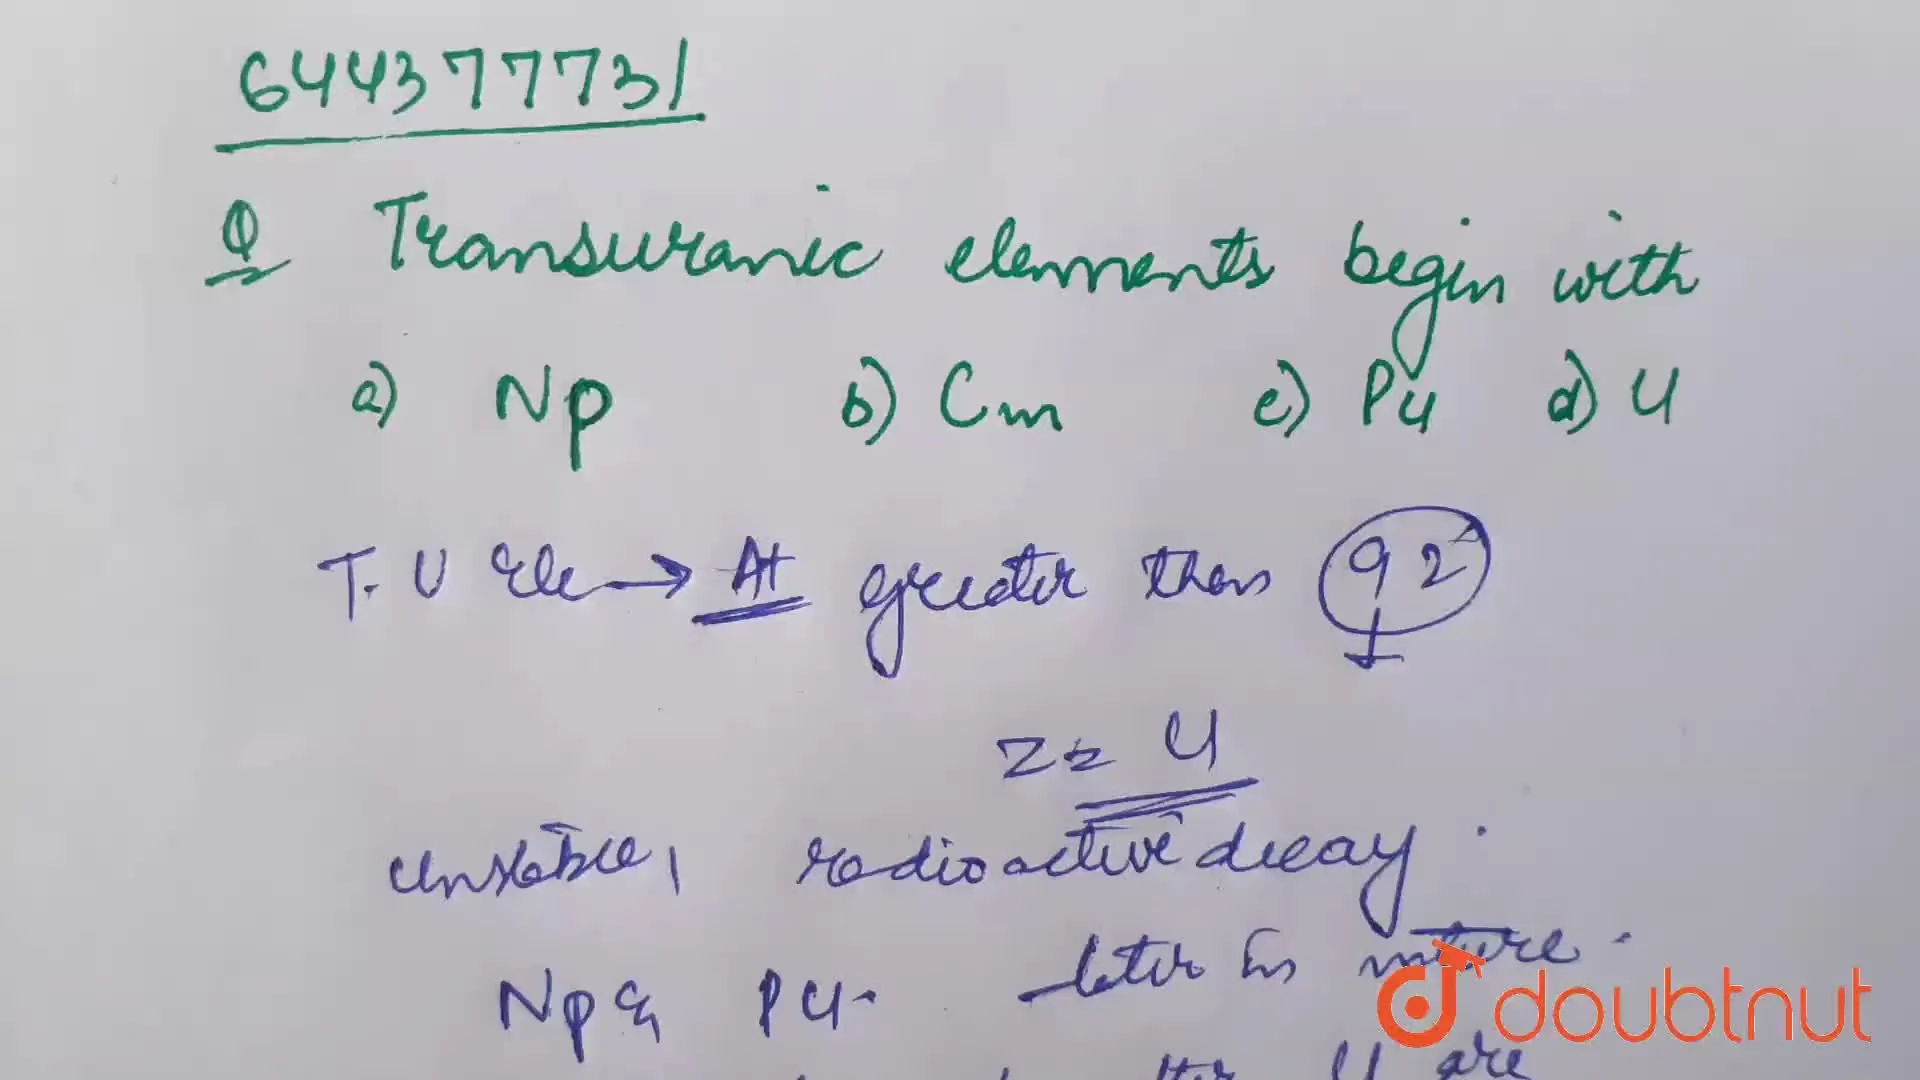 644377731
Q Transuranic elements begin with
a) Np b) Cm c) Pu d) U
T.U ele → At greater than 92
Z = U
unstable, radioactive decay.
Np & Pu. later in nature.
U are
doubtnut